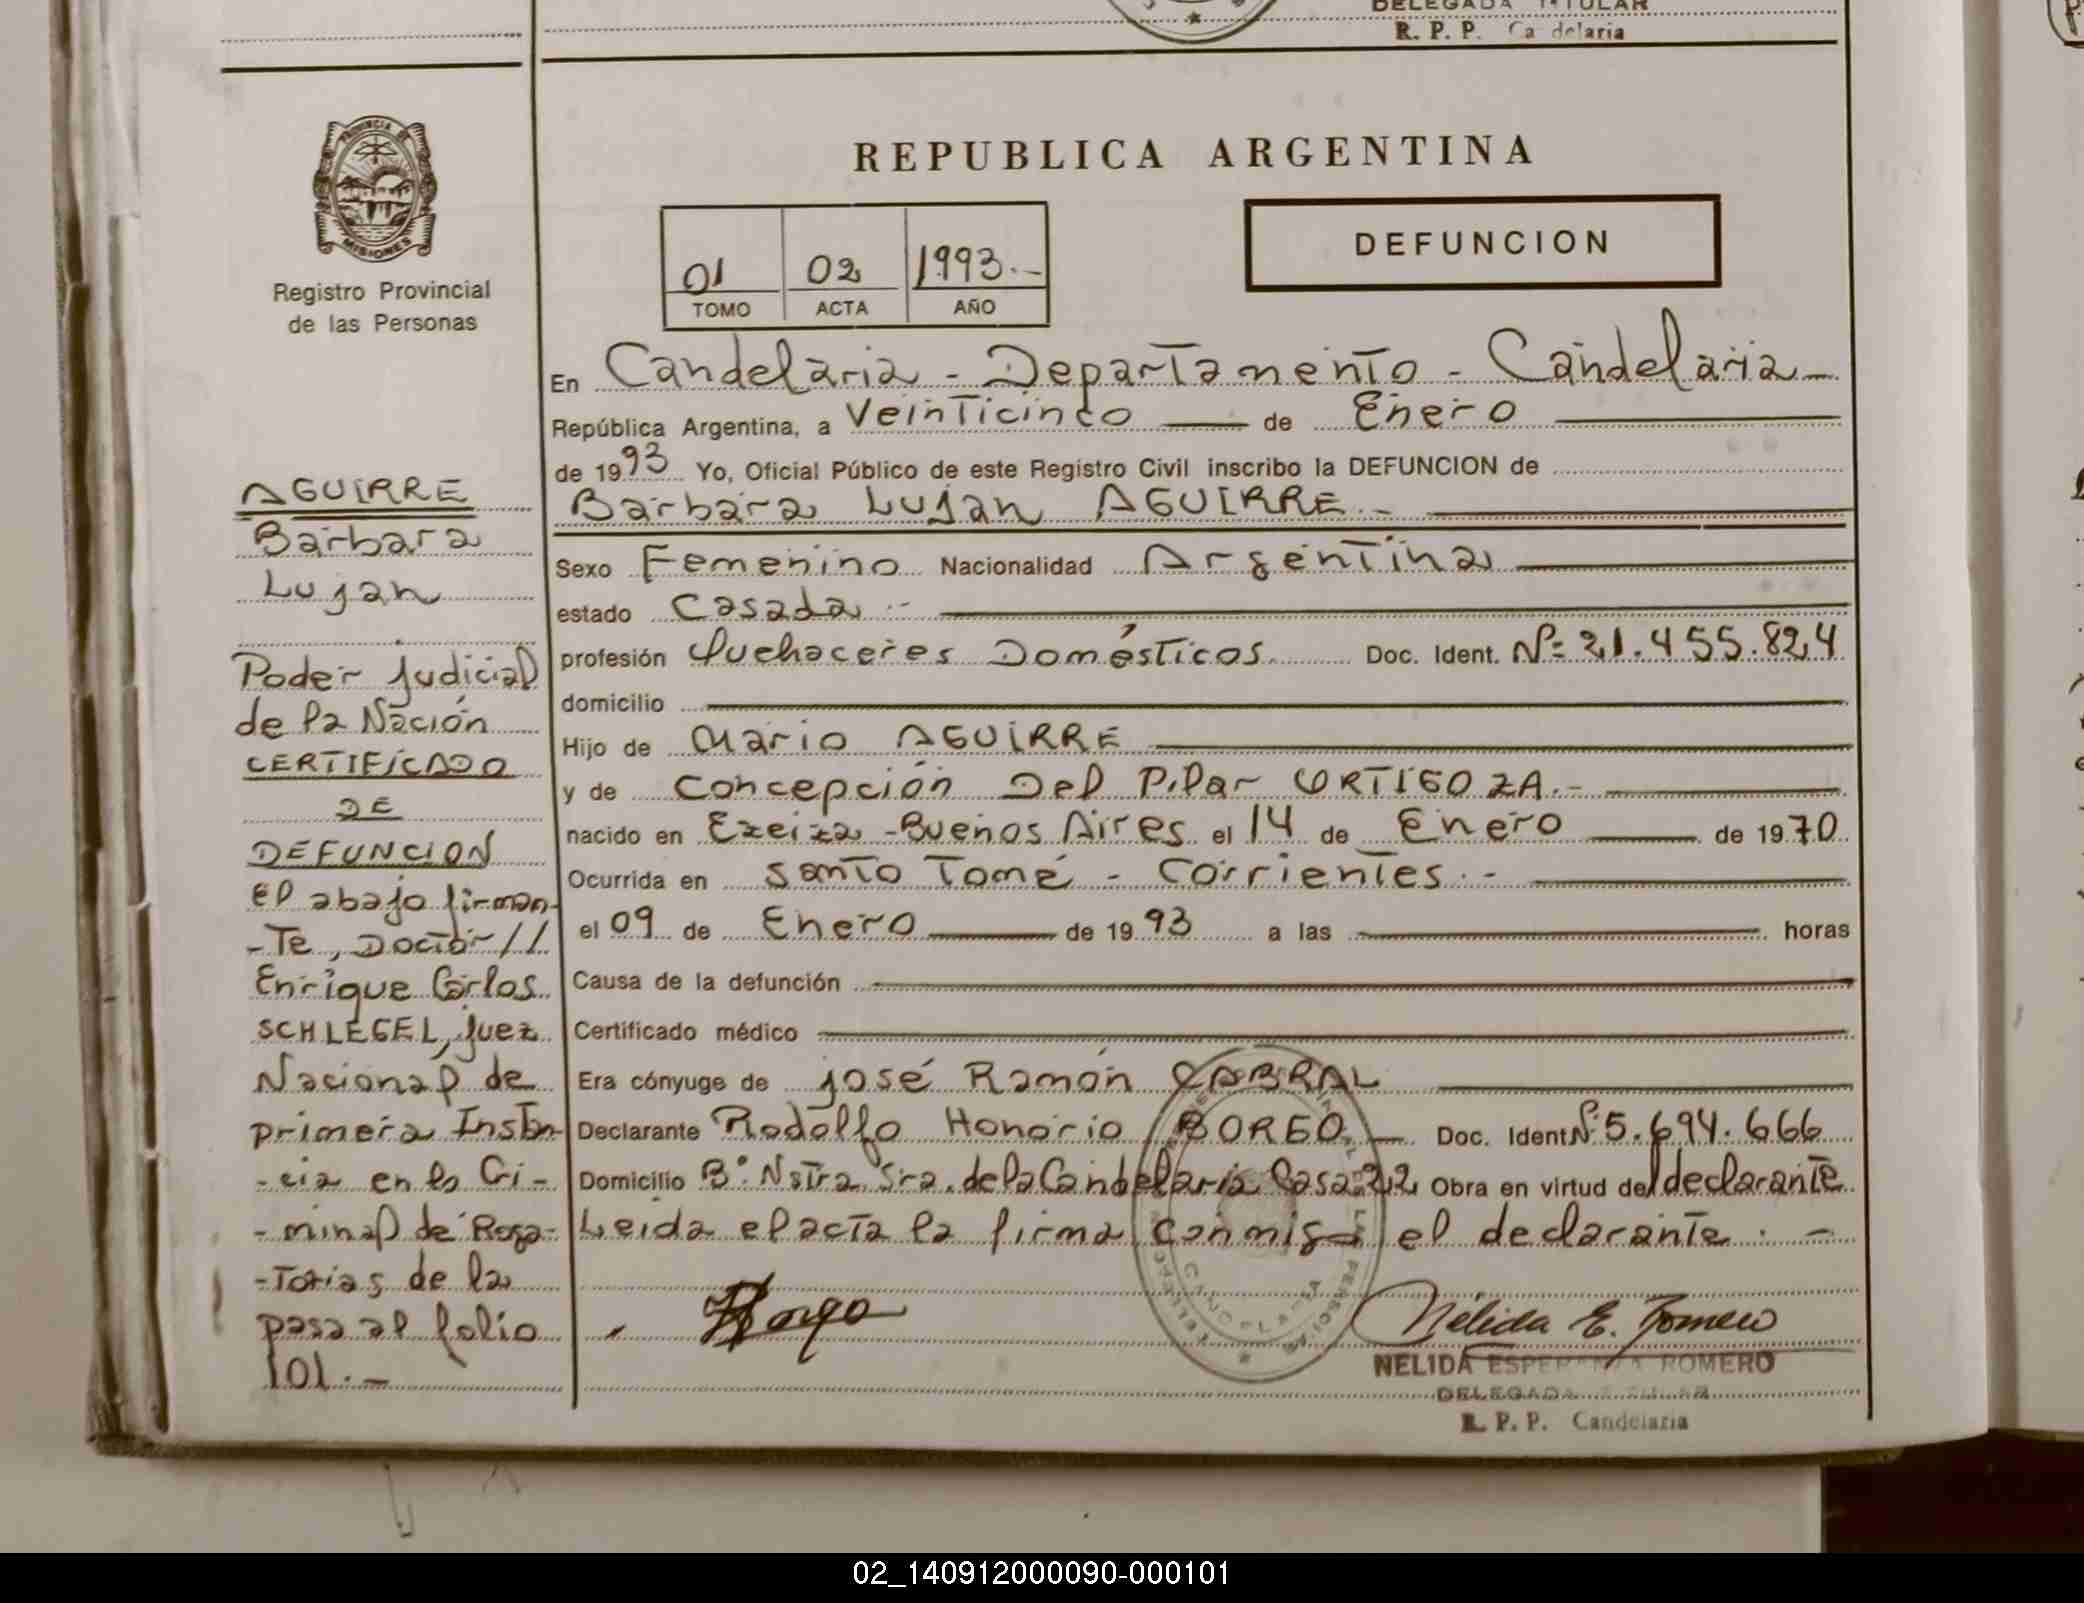 DELEGADA TITULAR
R. P. P. Candelaria
PROVINCIA DE
MISIONES
Registro Provincial
de las Personas
REPUBLICA ARGENTINA
01 02 1993.-
TOMO ACTA AÑO
DEFUNCION
En Candelaria - Departamento - Candelaria -
República Argentina, a Veinticinco de Enero
de 1993 Yo, Oficial Público de este Registro Civil inscribo la DEFUNCION de
Barbara Lujan AGUIRRE.-
Sexo Femenino Nacionalidad Argentina
estado Casada.-
profesión Quehaceres Domésticos. Doc. Ident. Nº 21.455.824
domicilio
Hijo de Mario AGUIRRE
y de Concepción Del Pilar ORTIGOZA.-
nacido en Ezeiza - Buenos Aires. el 14 de Enero de 1970.
Ocurrida en Santo Tomé - Corrientes.-
el 09 de Enero de 1993 a las horas
Causa de la defunción
Certificado médico
Era cónyuge de José Ramón CABRAL
Declarante Rodolfo Honorio BORGO Doc. Ident Nº 5.694.666
Domicilio Bº Nstra Sra. de la Candelaria Casa 22 Obra en virtud del declarante
Leida el acta la firma conmigo el declarante. -
Nélida E. Romero
NELIDA ESPERANZA ROMERO
DELEGADA TITULAR
R. P. P. Candelaria
AGUIRRE
Barbara
Lujan
Poder Judicial
de la Nación
CERTIFICADO
DE
DEFUNCION
El abajo firman-
-Te, Doctor //
Enrique Carlos
SCHLEGEL, Juez
Nacional de
primera Instan-
-cia en lo Cri-
-minal de Roga-
-Torias de la
pasa al folio
101.-
02_140912000090-000101